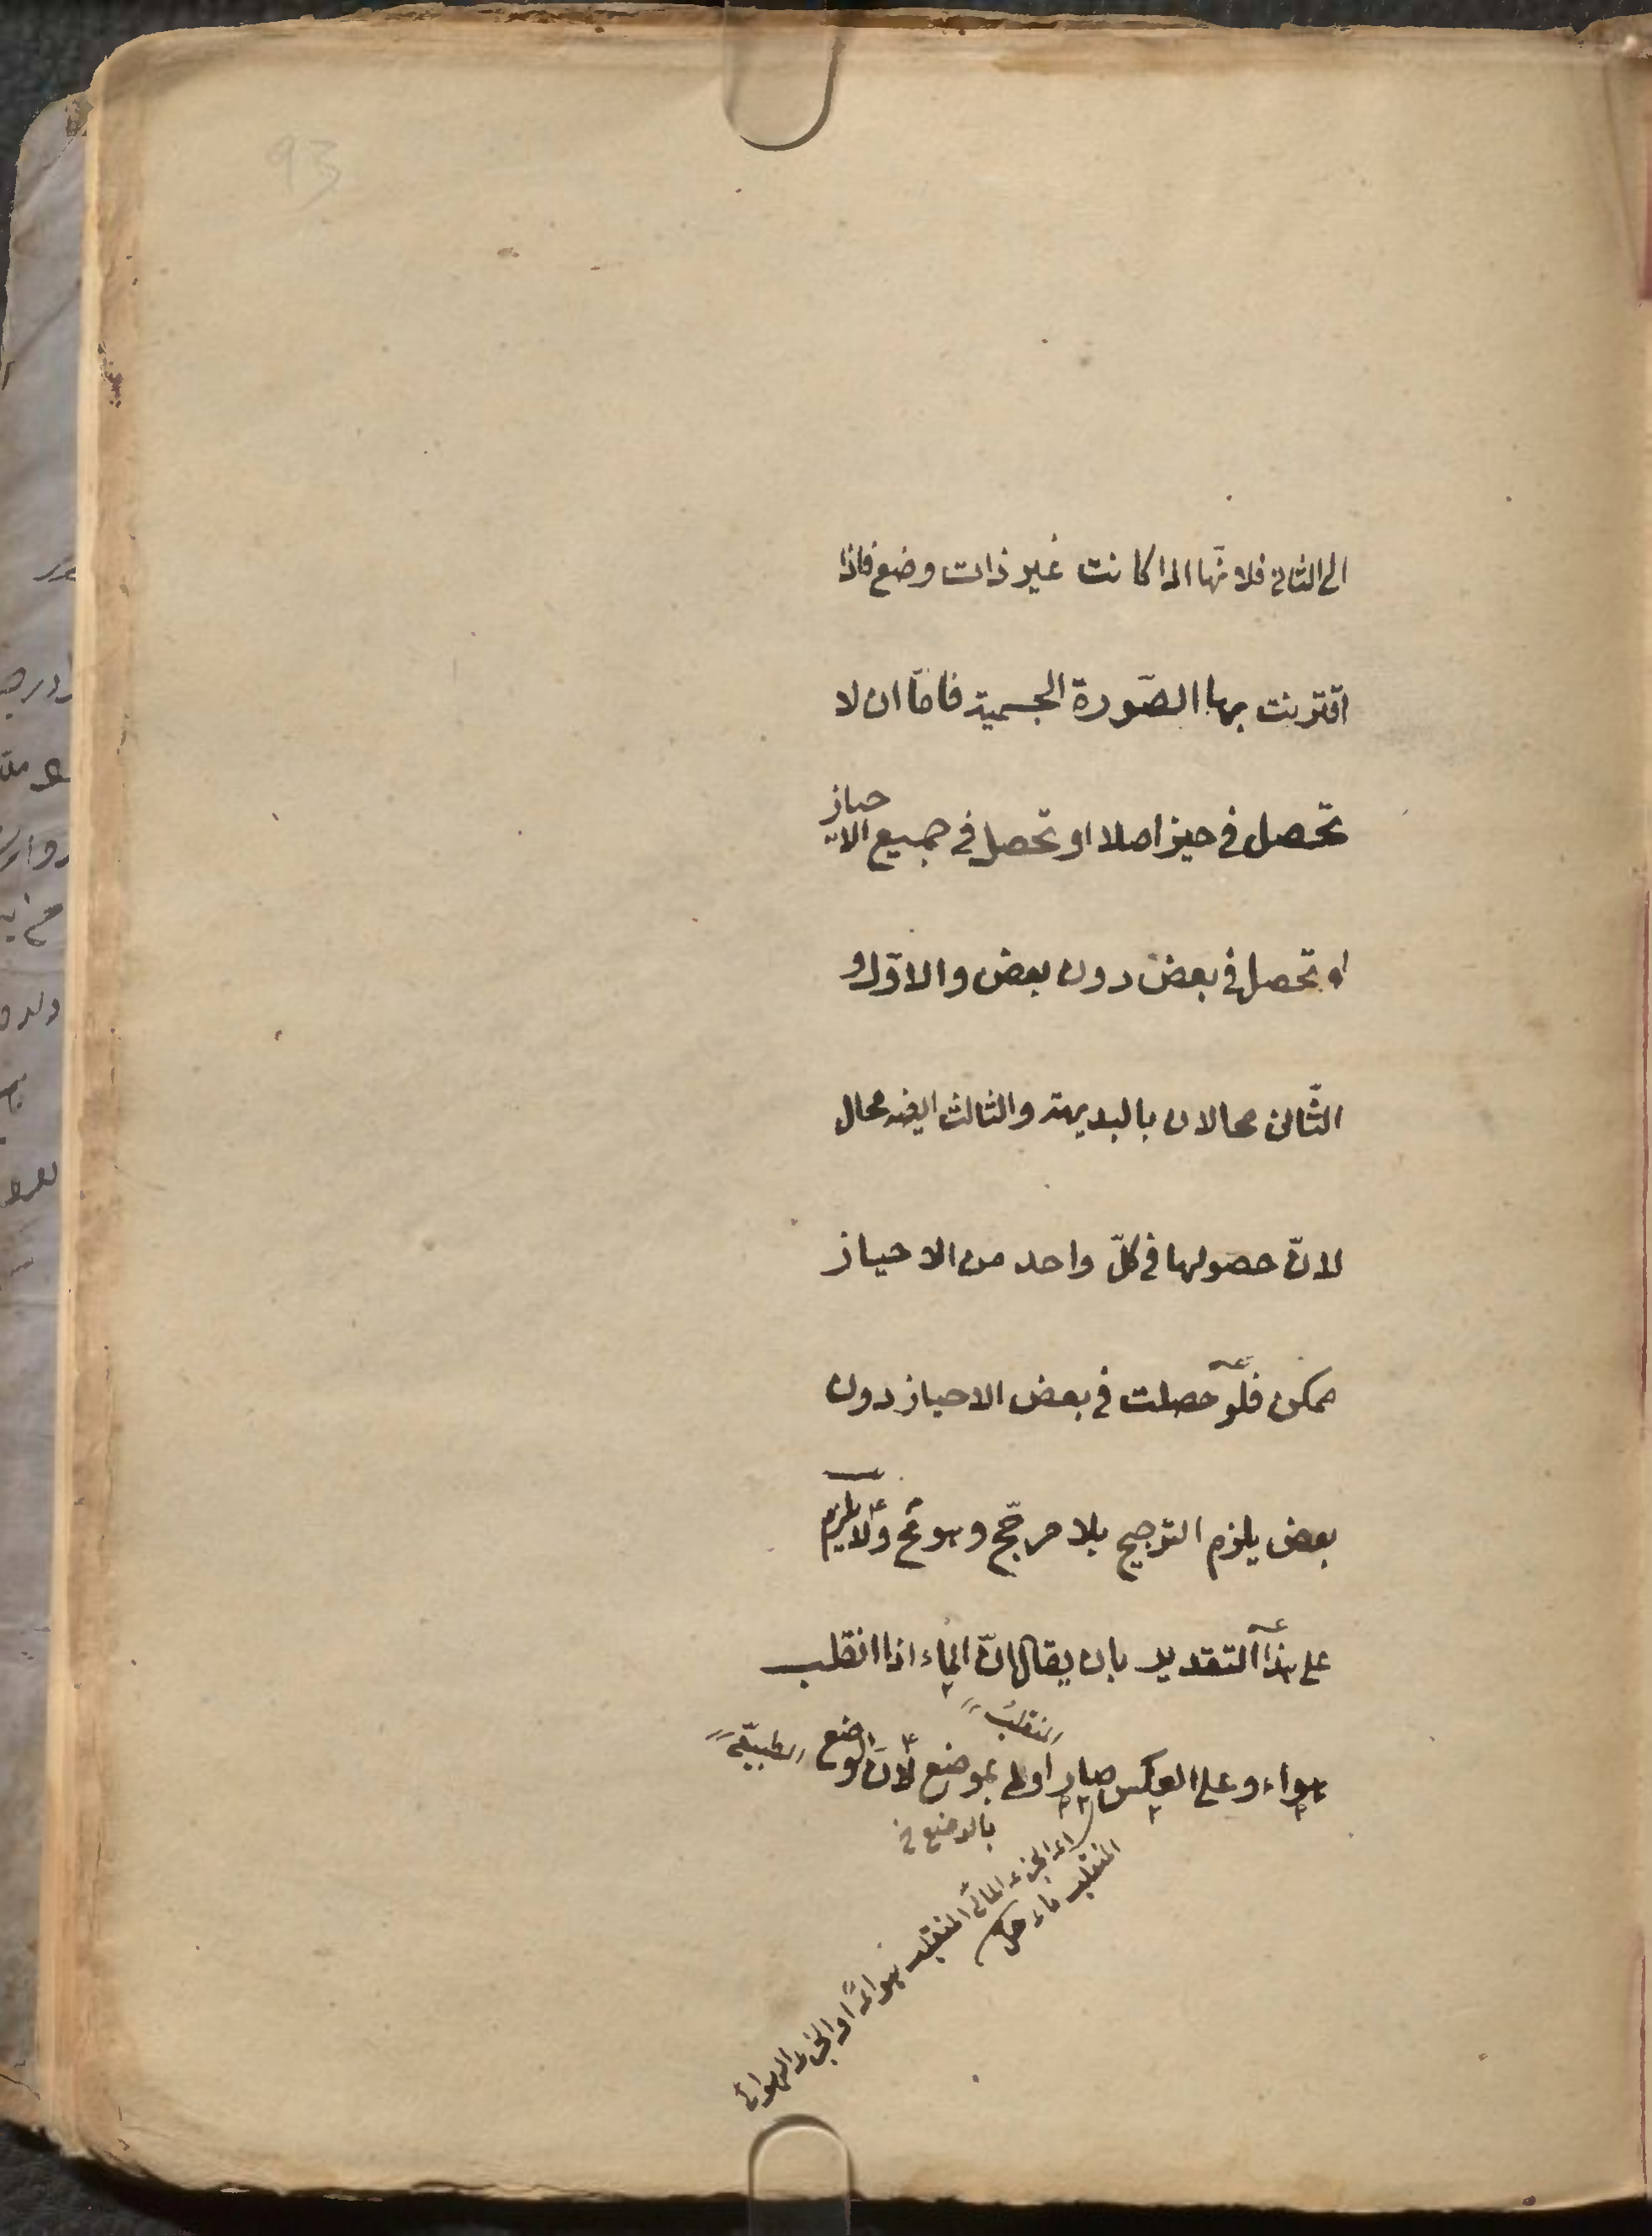 93
الى الثانى فلانّها اذا كانت غير ذات وضع فاذا
اقترنت بها الصّورة الجسمية فامّا ان لا
تحصل فى حيز اصلا او تحصل فى جميع الاحياز
او تحصل فى بعض دون بعض والاوّل و
الثّانى محالان بالبديهة والثالث ايضا محال
لانّ حصولها فى كلّ واحد من الاحياز
ممكن فلو حصلت فى بعض الاحياز دون
بعض يلزم الترجيح بلا مرجّح وهو مح ولا يلزم
على هذا التقدير بان يقال انّ الماء اذا انقلب
المنقلب
هواء وعلى العكس صار اولى بموضع لانّ الوضع
الطبيعيّة
بالوضع
اى الجزء المائى المنقلب هواءً او الجزء الهوائى
المنقلب ماء